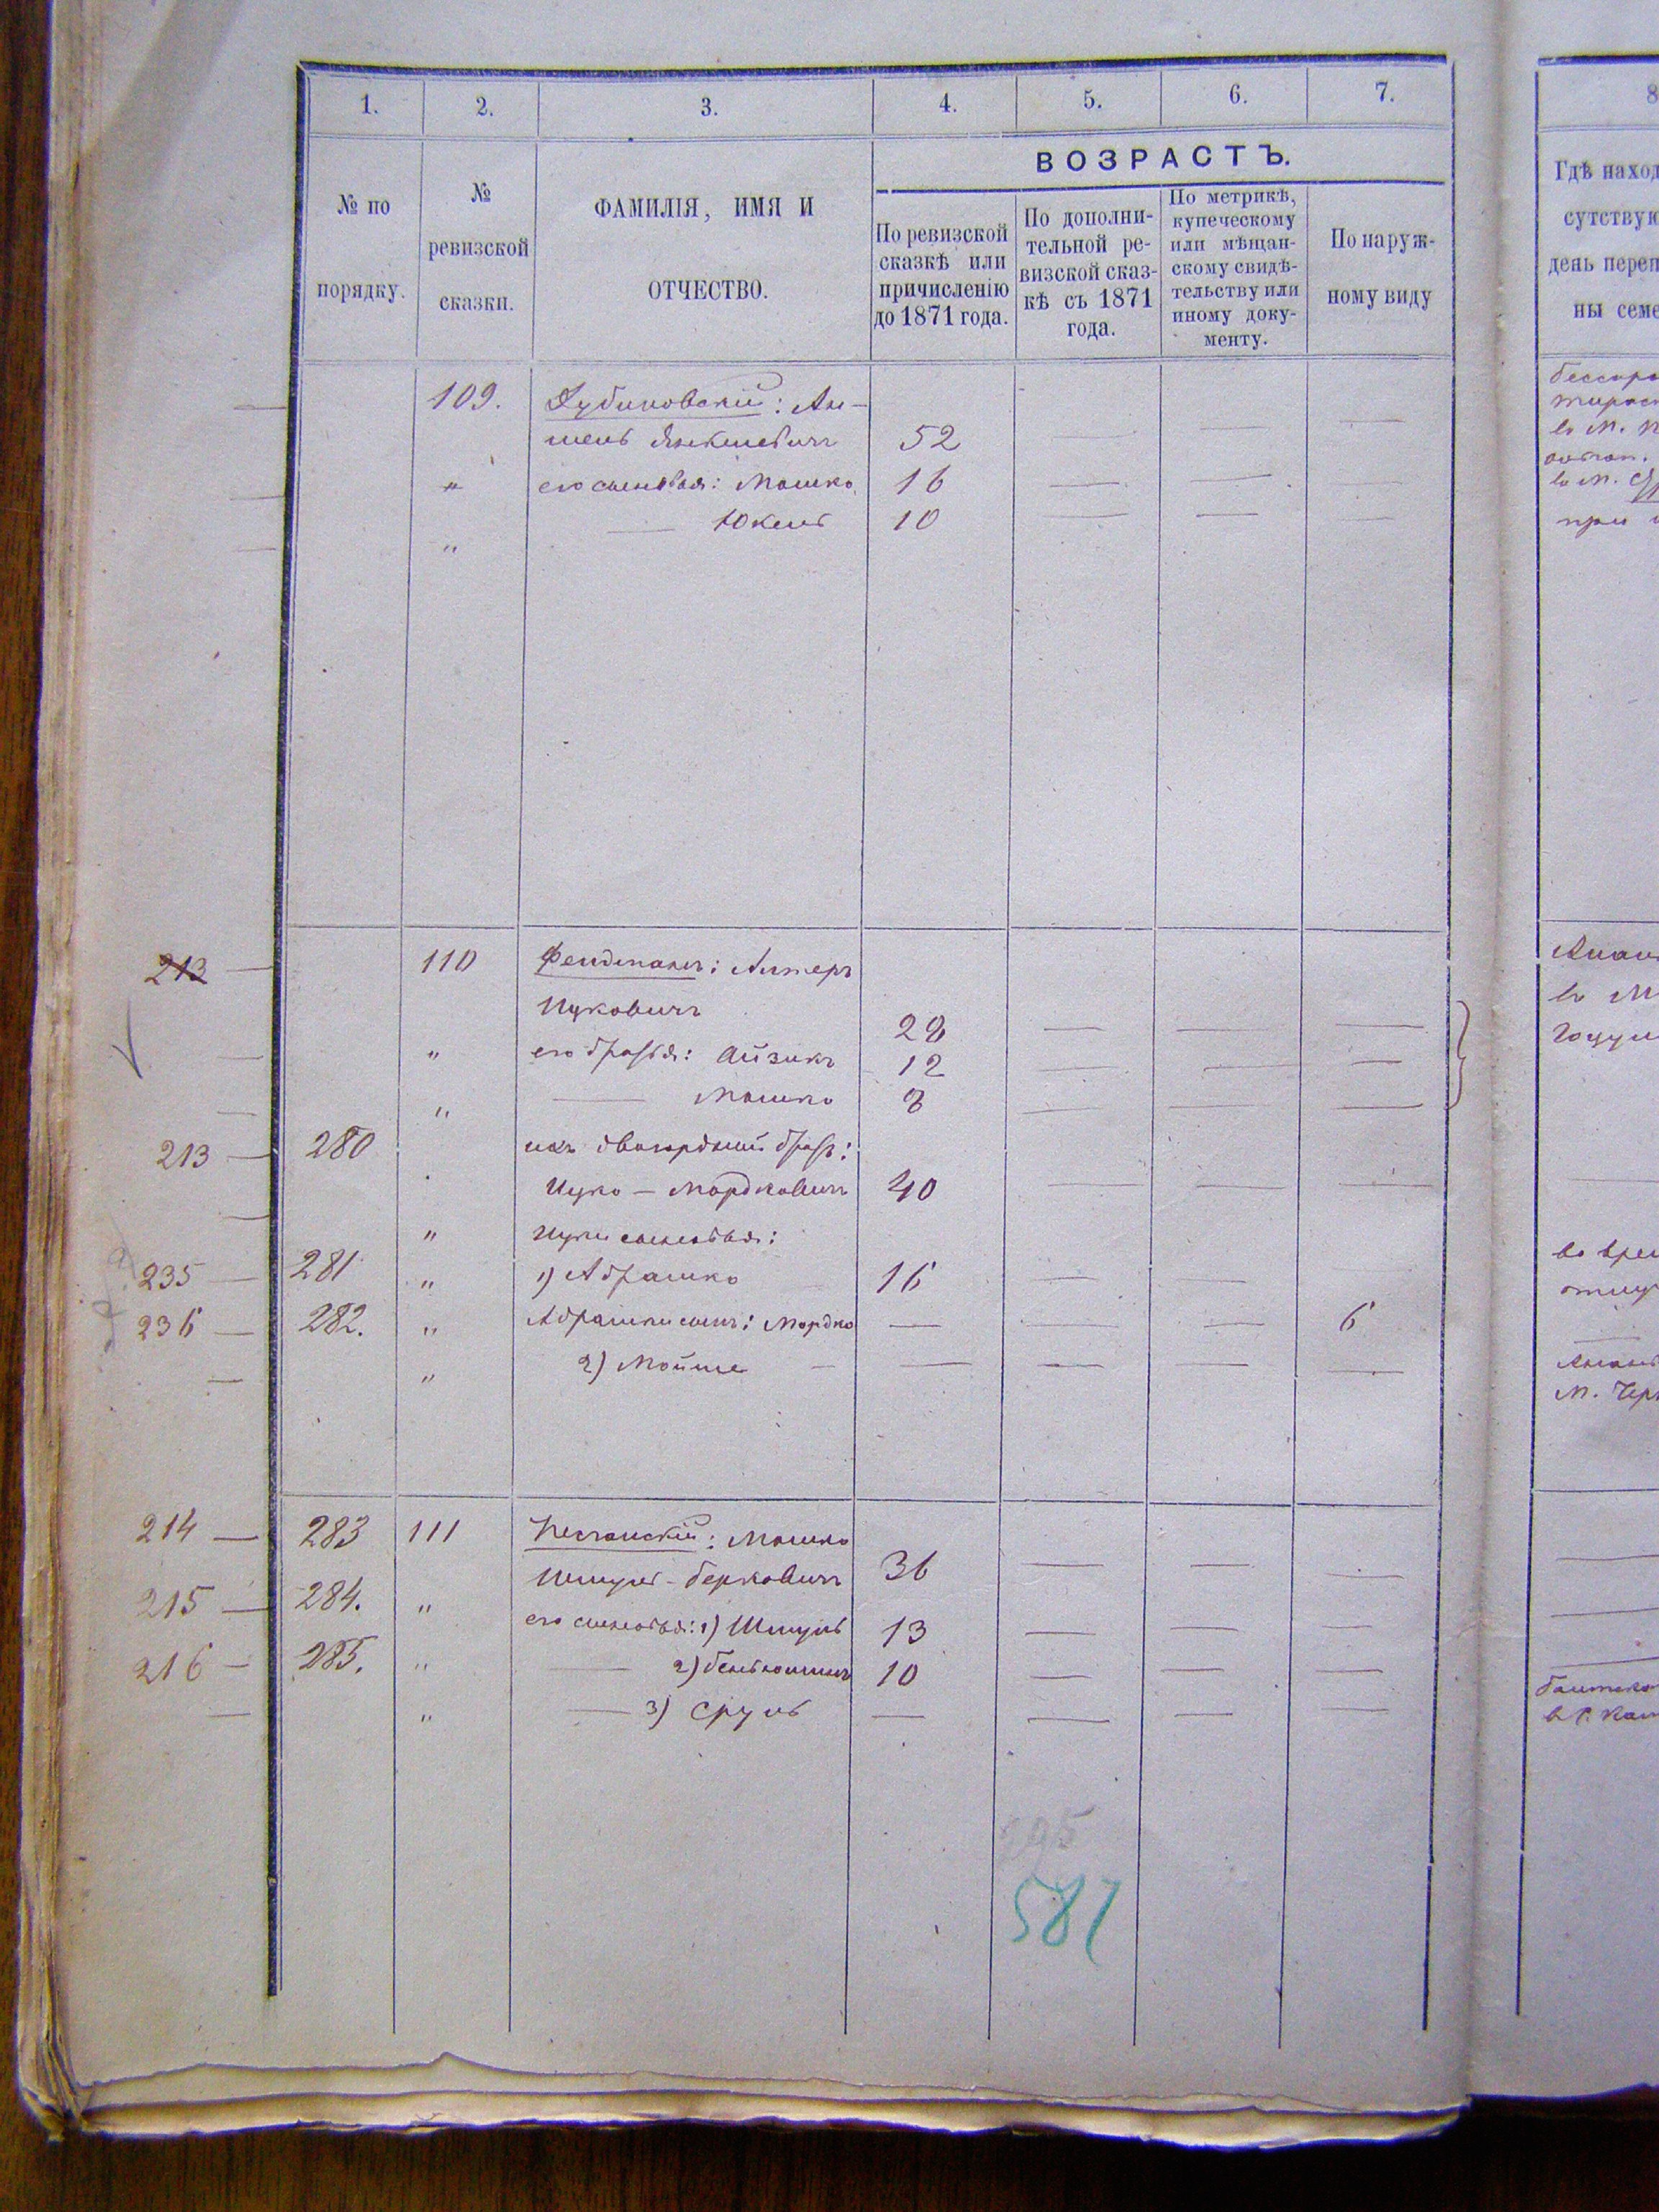 1. 2. 3. 4. 5. 6. 7. 8
ВОЗРАСТЪ.
№ по порядку.
№ ревизской сказки.
ФАМИЛІЯ, ИМЯ И ОТЧЕСТВО.
По ревизской
сказкѣ или
причисленію
до 1871 года.
По дополни-
тельной ре-
визской сказ-
кѣ съ 1871
года.
По метрикѣ,
купеческому
или мѣщан-
скому свидѣ-
тельству или
иному доку-
менту.
По наруж-
ному виду
Гдѣ наход
сутствую
день переп
ны семе
109. Дубиновскій: Ан-
шель Янкелевичъ 52 — — —
— " его сыновья: Мошко 16 — — —
— " — Юкель 10 — — —
213 — 110 Фельдманъ: Алтеръ
Ицковичъ 28 — — —
— " его братья: Айзикъ 12 — — —
— " — Мошко 8 — — —
213 — 280 ихъ двоюродный братъ:
Ицко — Мордковичъ 40 — — —
— " Ицки сыновья:
235 — 281 " 1) Абрашко 16 — —
236 — 282. " Абрашки сынъ: Мордко — — — 6
— " 2) Мойше — — — —
214 — 283 111 Песчанскій: Мошко
Шмуль-Берковичъ 36 — — —
215 — 284. " его сыновья: 1) Шмуль 13 — — —
216 — 285. " — 2) Беньюминъ 10 — — —
— " — 3) Сруль — — — —
295
581